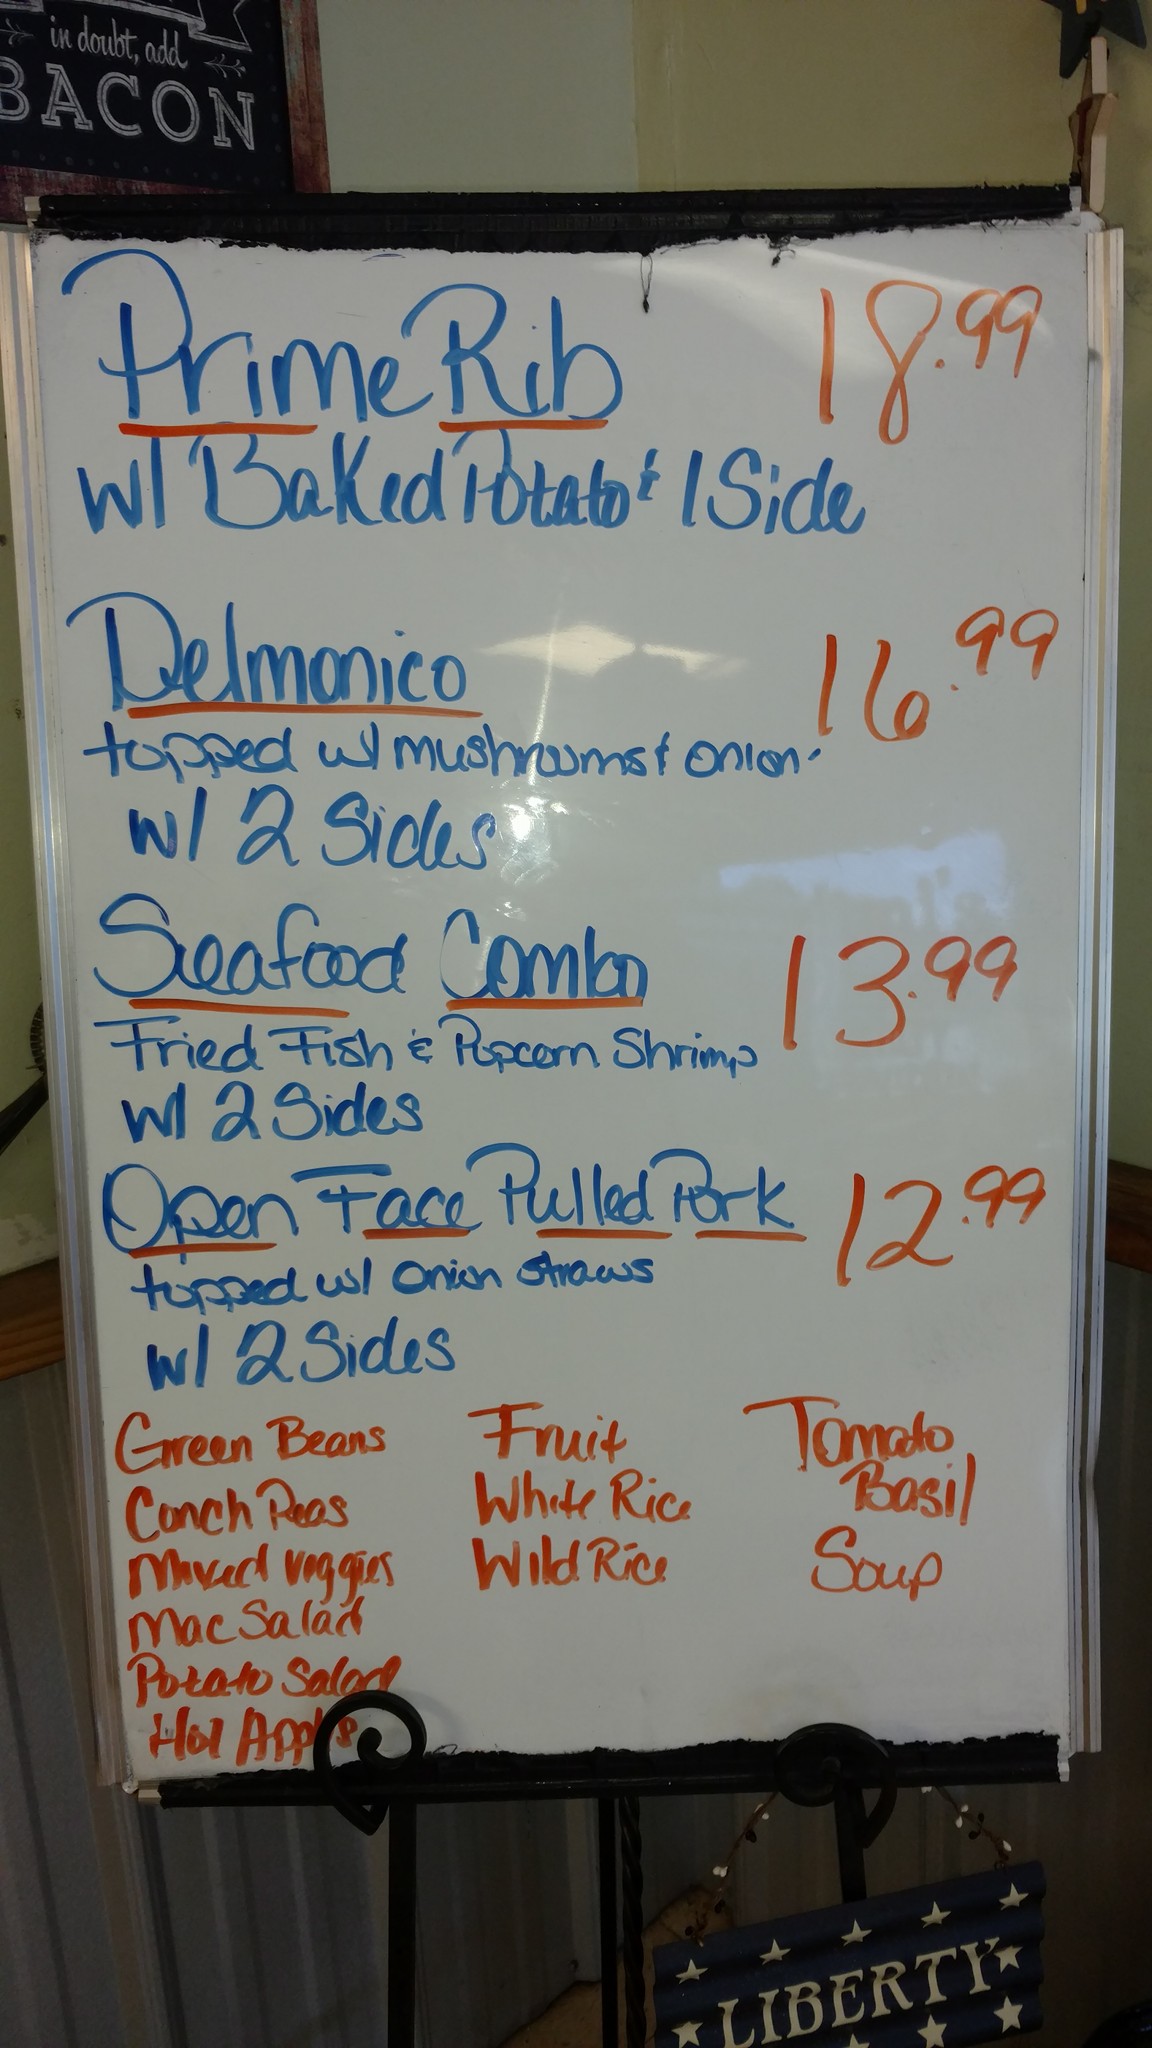 in doubt, add
BACON
Prime Rib 18.99
w/ Baked Potato & 1 Side
Delmonico 16.99
topped w/ mushrooms & onion
w/ 2 Sides
Seafood Combo 13.99
Fried Fish & Popcorn Shrimp
w/ 2 Sides
Open Face Pulled Pork 12.99
topped w/ onion straws
w/ 2 Sides
Green Beans
Conch Peas
Mixed Veggies
Mac Salad
Potato Salad
Hot Apples
Fruit
White Rice
Wild Rice
Tomato
Basil
Soup
LIBERTY